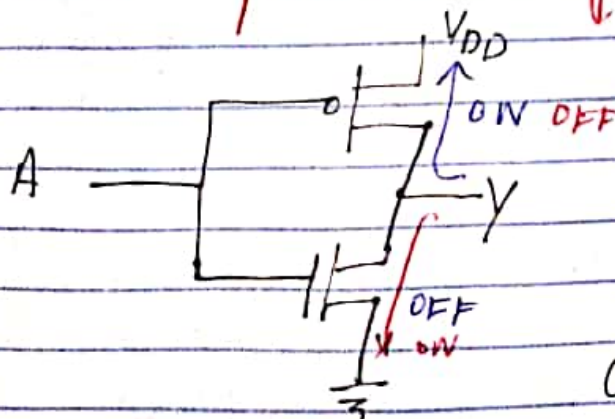 V_DD
ON OFF
A
Y
OFF
ON